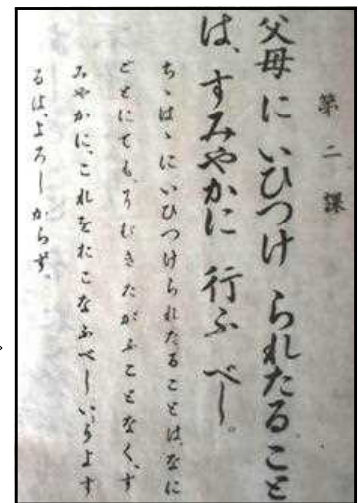 第二課
父母にいひつけられたること
は、すみやかに行ふべし。
ちゝはゝにいひつけられたることは、なに
ごとにても、そむきたがふことなく、す
みやかに、これをおこなふべし、いらよす
るは、よろしからず、